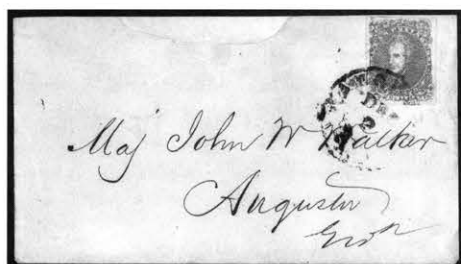 Maj John W Walker
Augusta
DE